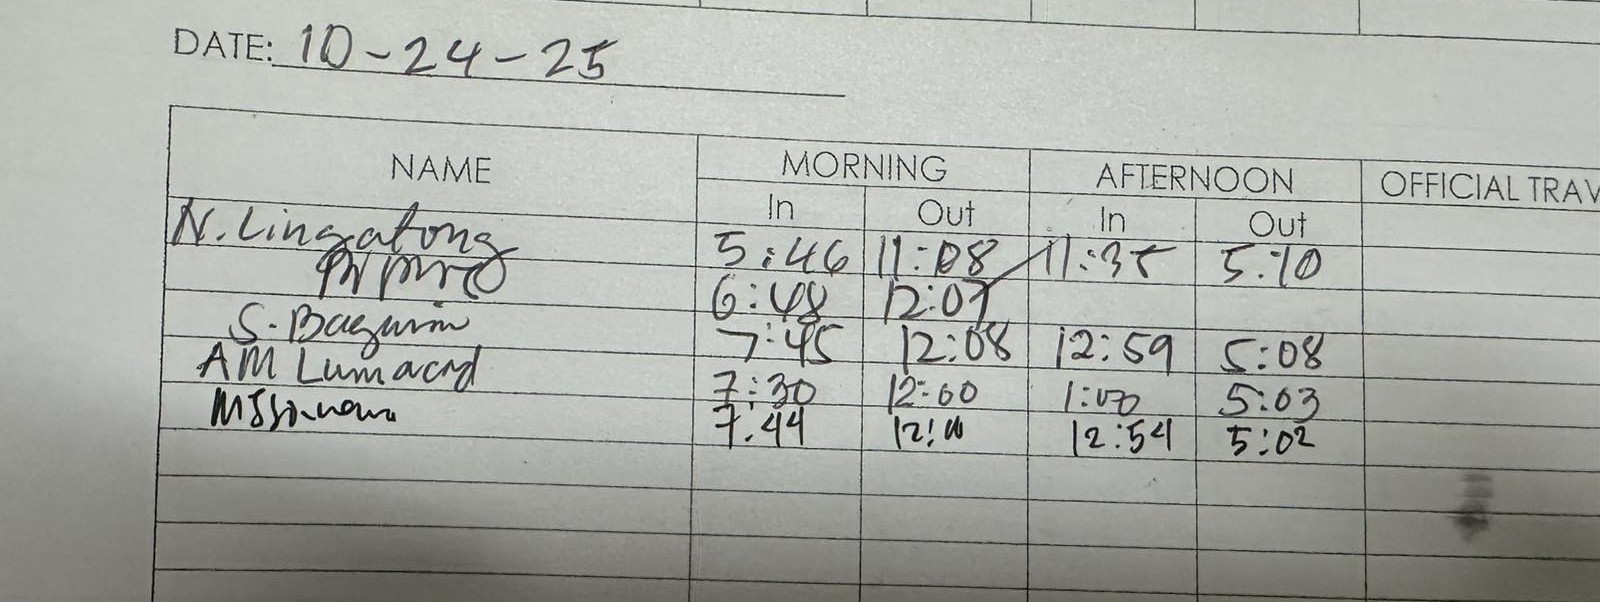 DATE: 10-24-25
NAME MORNING AFTERNOON OFFICIAL TRAV
In Out In Out
N. Lingatong 5:46 11:08 11:35 5:10
6:48 12:07
S. Baguin 7:45 12:08 12:59 5:08
AM Lumacad 7:30 12:00 1:00 5:03
7:44 12:54 5:02